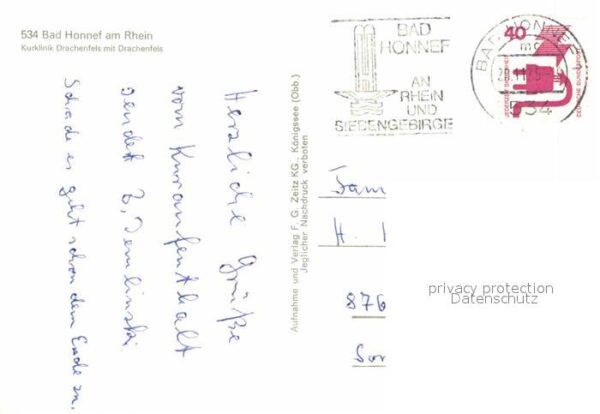 534 Bad Honnef am Rhein
Kurklinik Drachenfels mit Drachenfels
Herzliche Grüße
vom Kuraufenthalt
sendet
Schade es geht schon dem Ende zu.
Aufnahme und Verlag F. G. Zeitz KG., Königssee (Obb.)
Jeglicher Nachdruck verboten
BAD
HONNEF
AN
RHEIN
UND
SIEBENGEBIRGE
BAD HONNEF
534
40
JEDERZEIT SICHERHEIT
DEUTSCHE BUNDESPOST
Fam
H.
876
privacy protection
Datenschutz